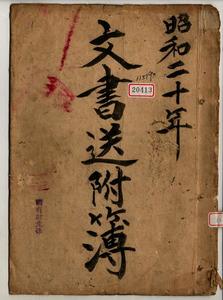 昭和二十年
文書送附簿
20413